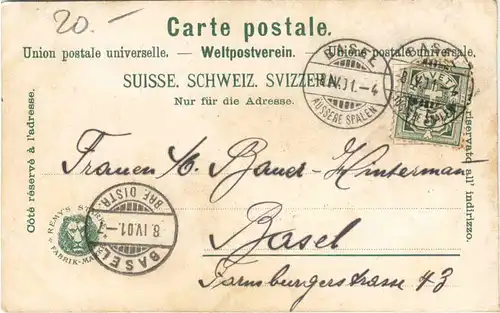 20.-
Carte postale.
Union postale universelle. — Weltpostverein. — Unione postale universale.
SUISSE. SCHWEIZ. SVIZZERA.
Nur für die Adresse.
Côté réservé à l'adresse.
riservato all' indirizzo.
BASEL
8.IV.01.-4
ÄUSSERE SPALEN
Frauen
Baud-Hinterman
Basel
Farnsburgerstrasse 43
BRF. DISTR.
8.IV.01.-7
BASEL
REMY'S
FABRIK-MARKE